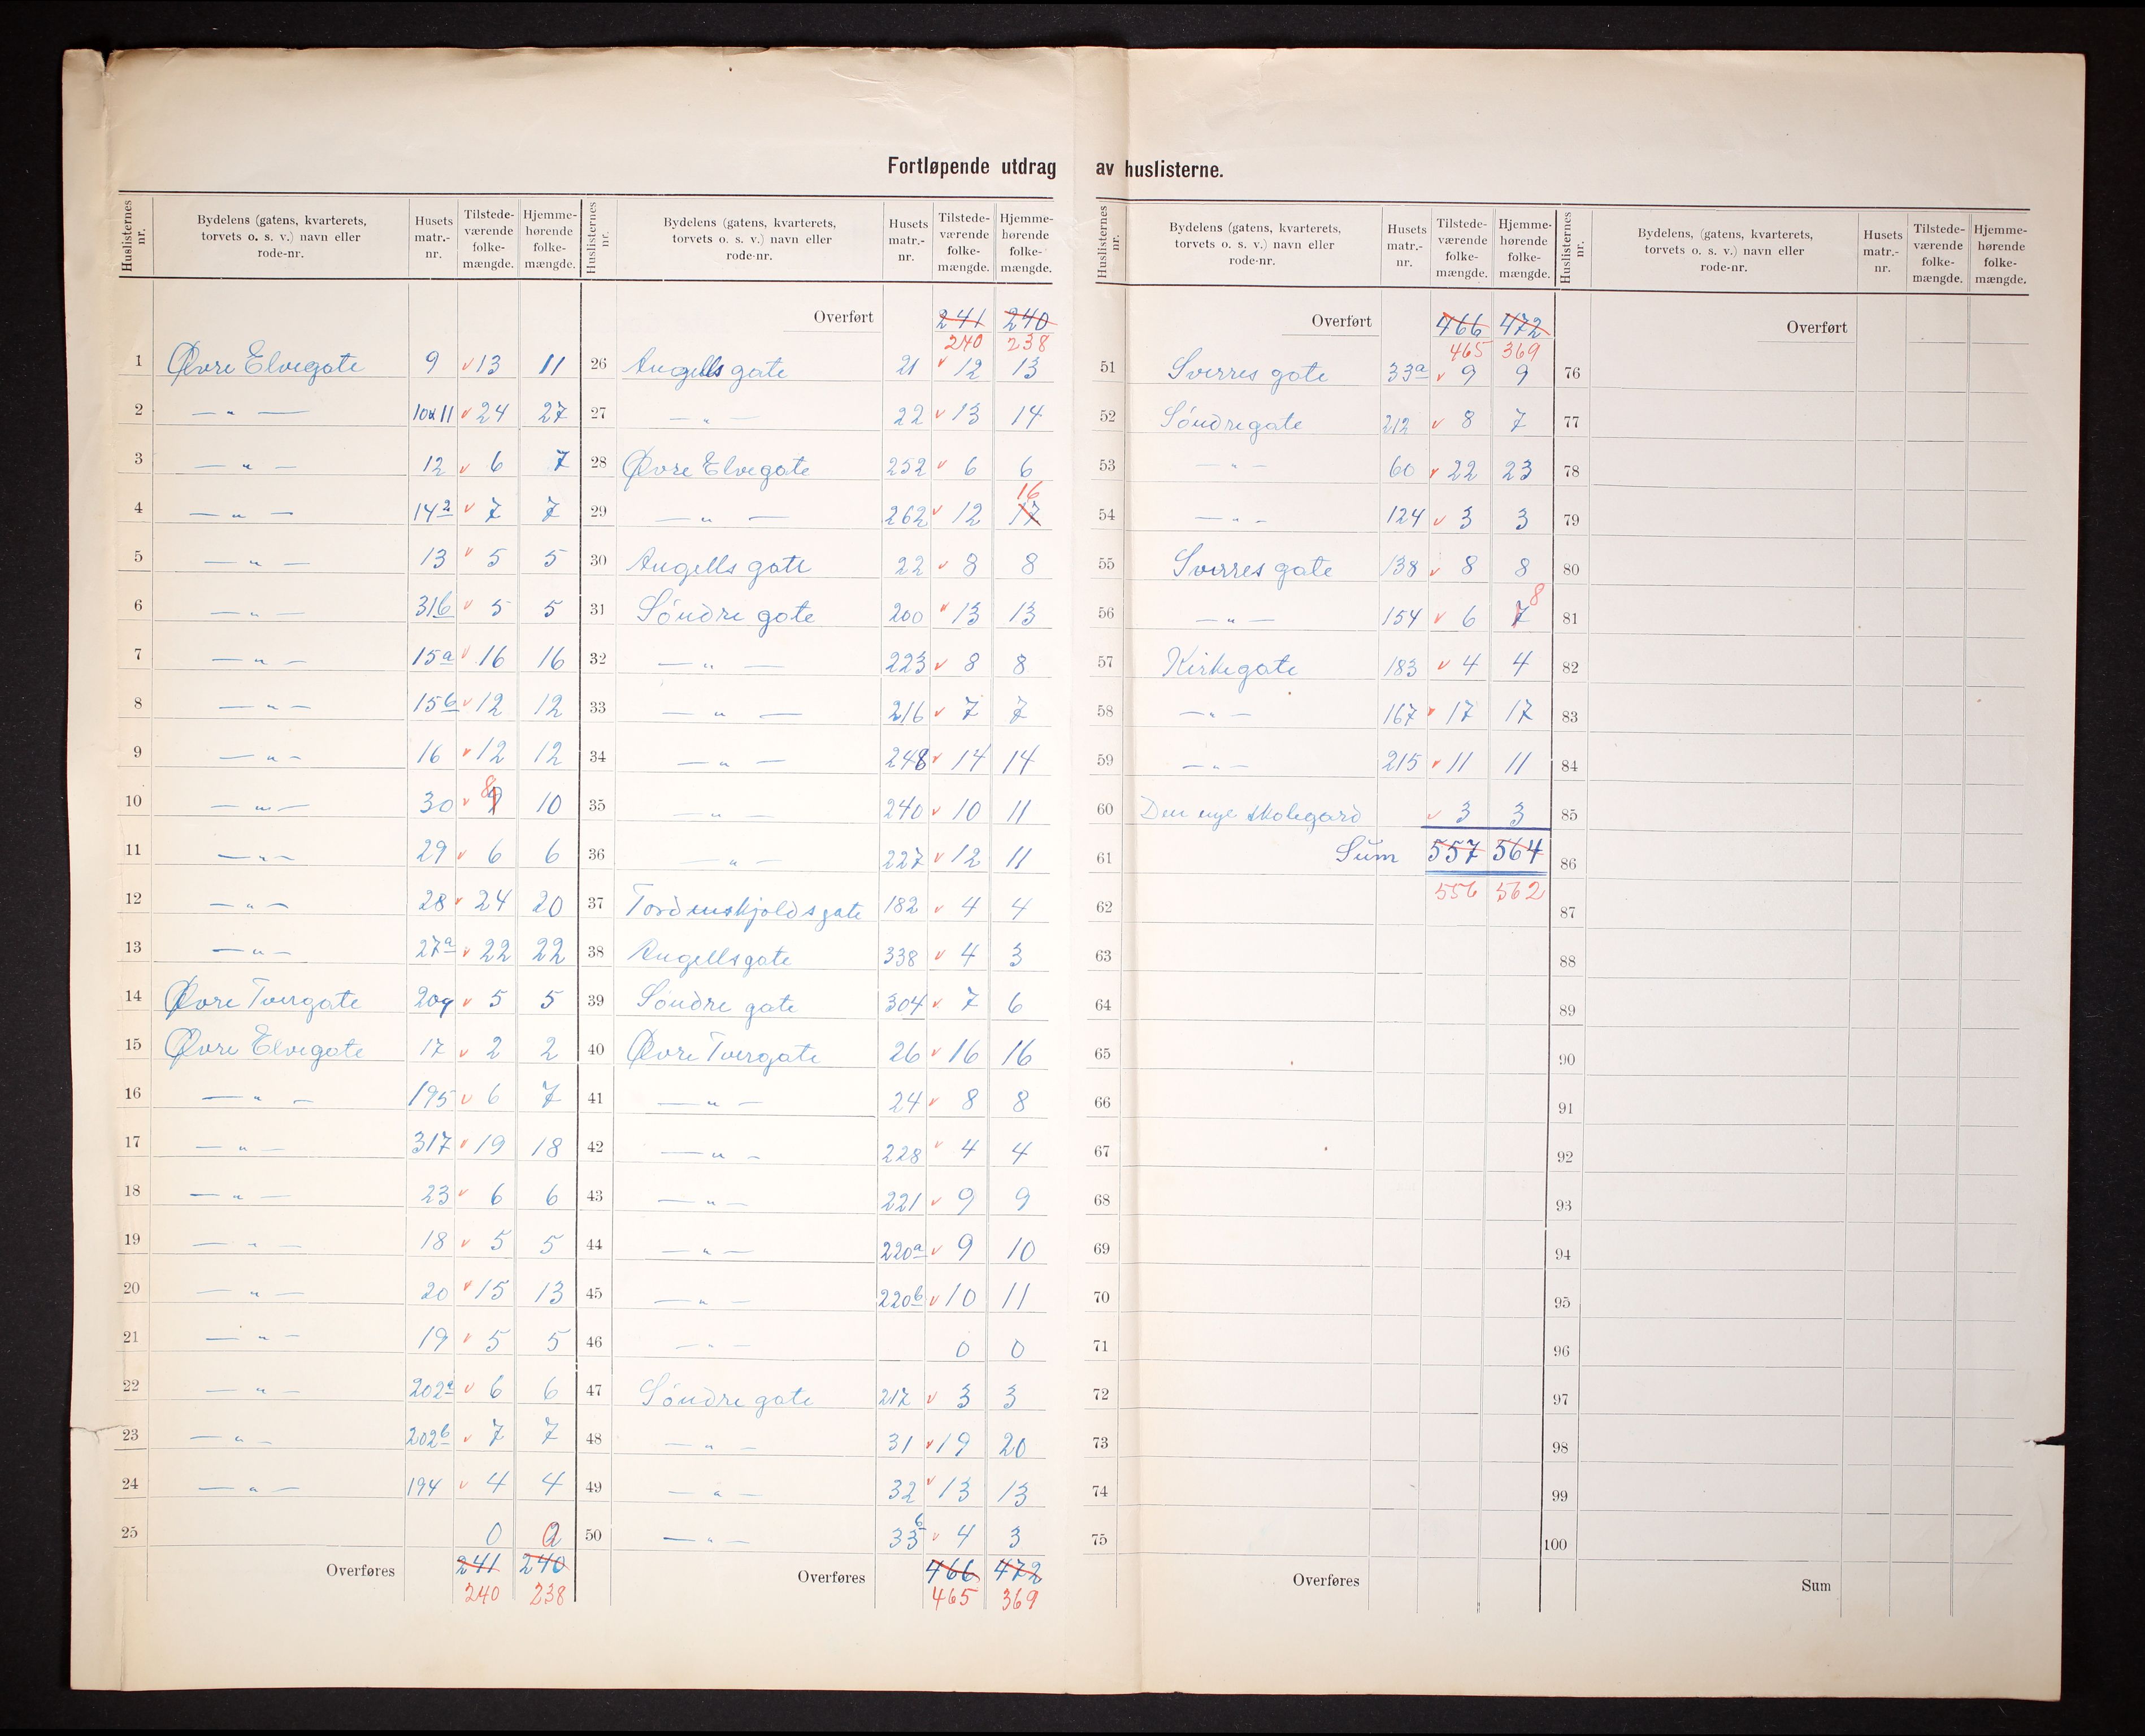 Fortløpende utdrag av huslisterne.
Huslisternes nr. | Bydelens (gatens, kvarterets, torvets o. s. v.) navn eller rode-nr. | Husets matr.-nr. | Tilstede-værende folke-mængde. | Hjemme-hørende folke-mængde.
1 Øvre Elvegate 9 v 13 11
2 — " — 10 & 11 v 24 27
3 — " — 12 v 6 7
4 — " — 14a v 7 7
5 — " — 13 v 5 5
6 — " — 316 v 5 5
7 — " — 15a v 16 16
8 — " — 15b v 12 12
9 — " — 16 v 12 12
10 — " — 30 v 9 8 10
11 — " — 29 v 6 6
12 — " — 28 v 24 20
13 — " — 27a v 22 22
14 Øvre Tvergate 209 v 5 5
15 Øvre Elvegate 17 v 2 2
16 — " — 195 v 6 7
17 — " — 317 v 19 18
18 — " — 23 v 6 6
19 — " — 18 v 5 5
20 — " — 20 v 15 13
21 — " — 19 v 5 5
22 — " — 202a v 6 6
23 — " — 202b v 7 7
24 — " — 194 v 4 4
25 0 0
Overføres 241 240
240 238
Huslisternes nr. | Bydelens (gatens, kvarterets, torvets o. s. v.) navn eller rode-nr. | Husets matr.-nr. | Tilstede-værende folke-mængde. | Hjemme-hørende folke-mængde.
Overført 241 240
240 238
26 Angells gate 21 v 12 13
27 — " — 22 v 13 14
28 Øvre Elvegate 252 v 6 6
29 — " — 262 v 12 17 16
30 Angells gate 22 v 8 8
31 Söndre gate 200 v 13 13
32 — " — 223 v 8 8
33 — " — 216 v 7 7
34 — " — 248 v 14 14
35 — " — 240 v 10 11
36 — " — 227 v 12 11
37 Tordenskjolds gate 182 v 4 4
38 Angells gate 338 v 4 3
39 Söndre gate 304 v 7 6
40 Øvre Tvergate 26 v 16 16
41 — " — 24 v 8 8
42 — " — 228 v 4 4
43 — " — 221 v 9 9
44 — " — 220a v 9 10
45 — " — 220b v 10 11
46 — " — 0 0
47 Söndre gate 217 v 3 3
48 — " — 31 v 19 20
49 — " — 32 v 13 13
50 — " — 33b v 4 3
Overføres 466 472
465 369
Huslisternes nr. | Bydelens (gatens, kvarterets, torvets o. s. v.) navn eller rode-nr. | Husets matr.-nr. | Tilstede-værende folke-mængde. | Hjemme-hørende folke-mængde.
Overført 466 472
465 369
51 Sverres gate 33a v 9 9
52 Söndregate 212 v 8 7
53 — " — 60 v 22 23
54 — " — 124 v 3 3
55 Sverres gate 138 v 8 8
56 — " — 154 v 6 7 8
57 Kirkegate 183 v 4 4
58 — " — 167 v 17 17
59 — " — 215 v 11 11
60 Den nye skolegard v 3 3
61 Sum 557 564
62 556 562
63
64
65
66
67
68
69
70
71
72
73
74
75
Overføres
Huslisternes nr. | Bydelens, (gatens, kvarterets, torvets o. s. v.) navn eller rode-nr. | Husets matr.-nr. | Tilstede-værende folke-mængde. | Hjemme-hørende folke-mængde.
Overført
76
77
78
79
80
81
82
83
84
85
86
87
88
89
90
91
92
93
94
95
96
97
98
99
100
Sum